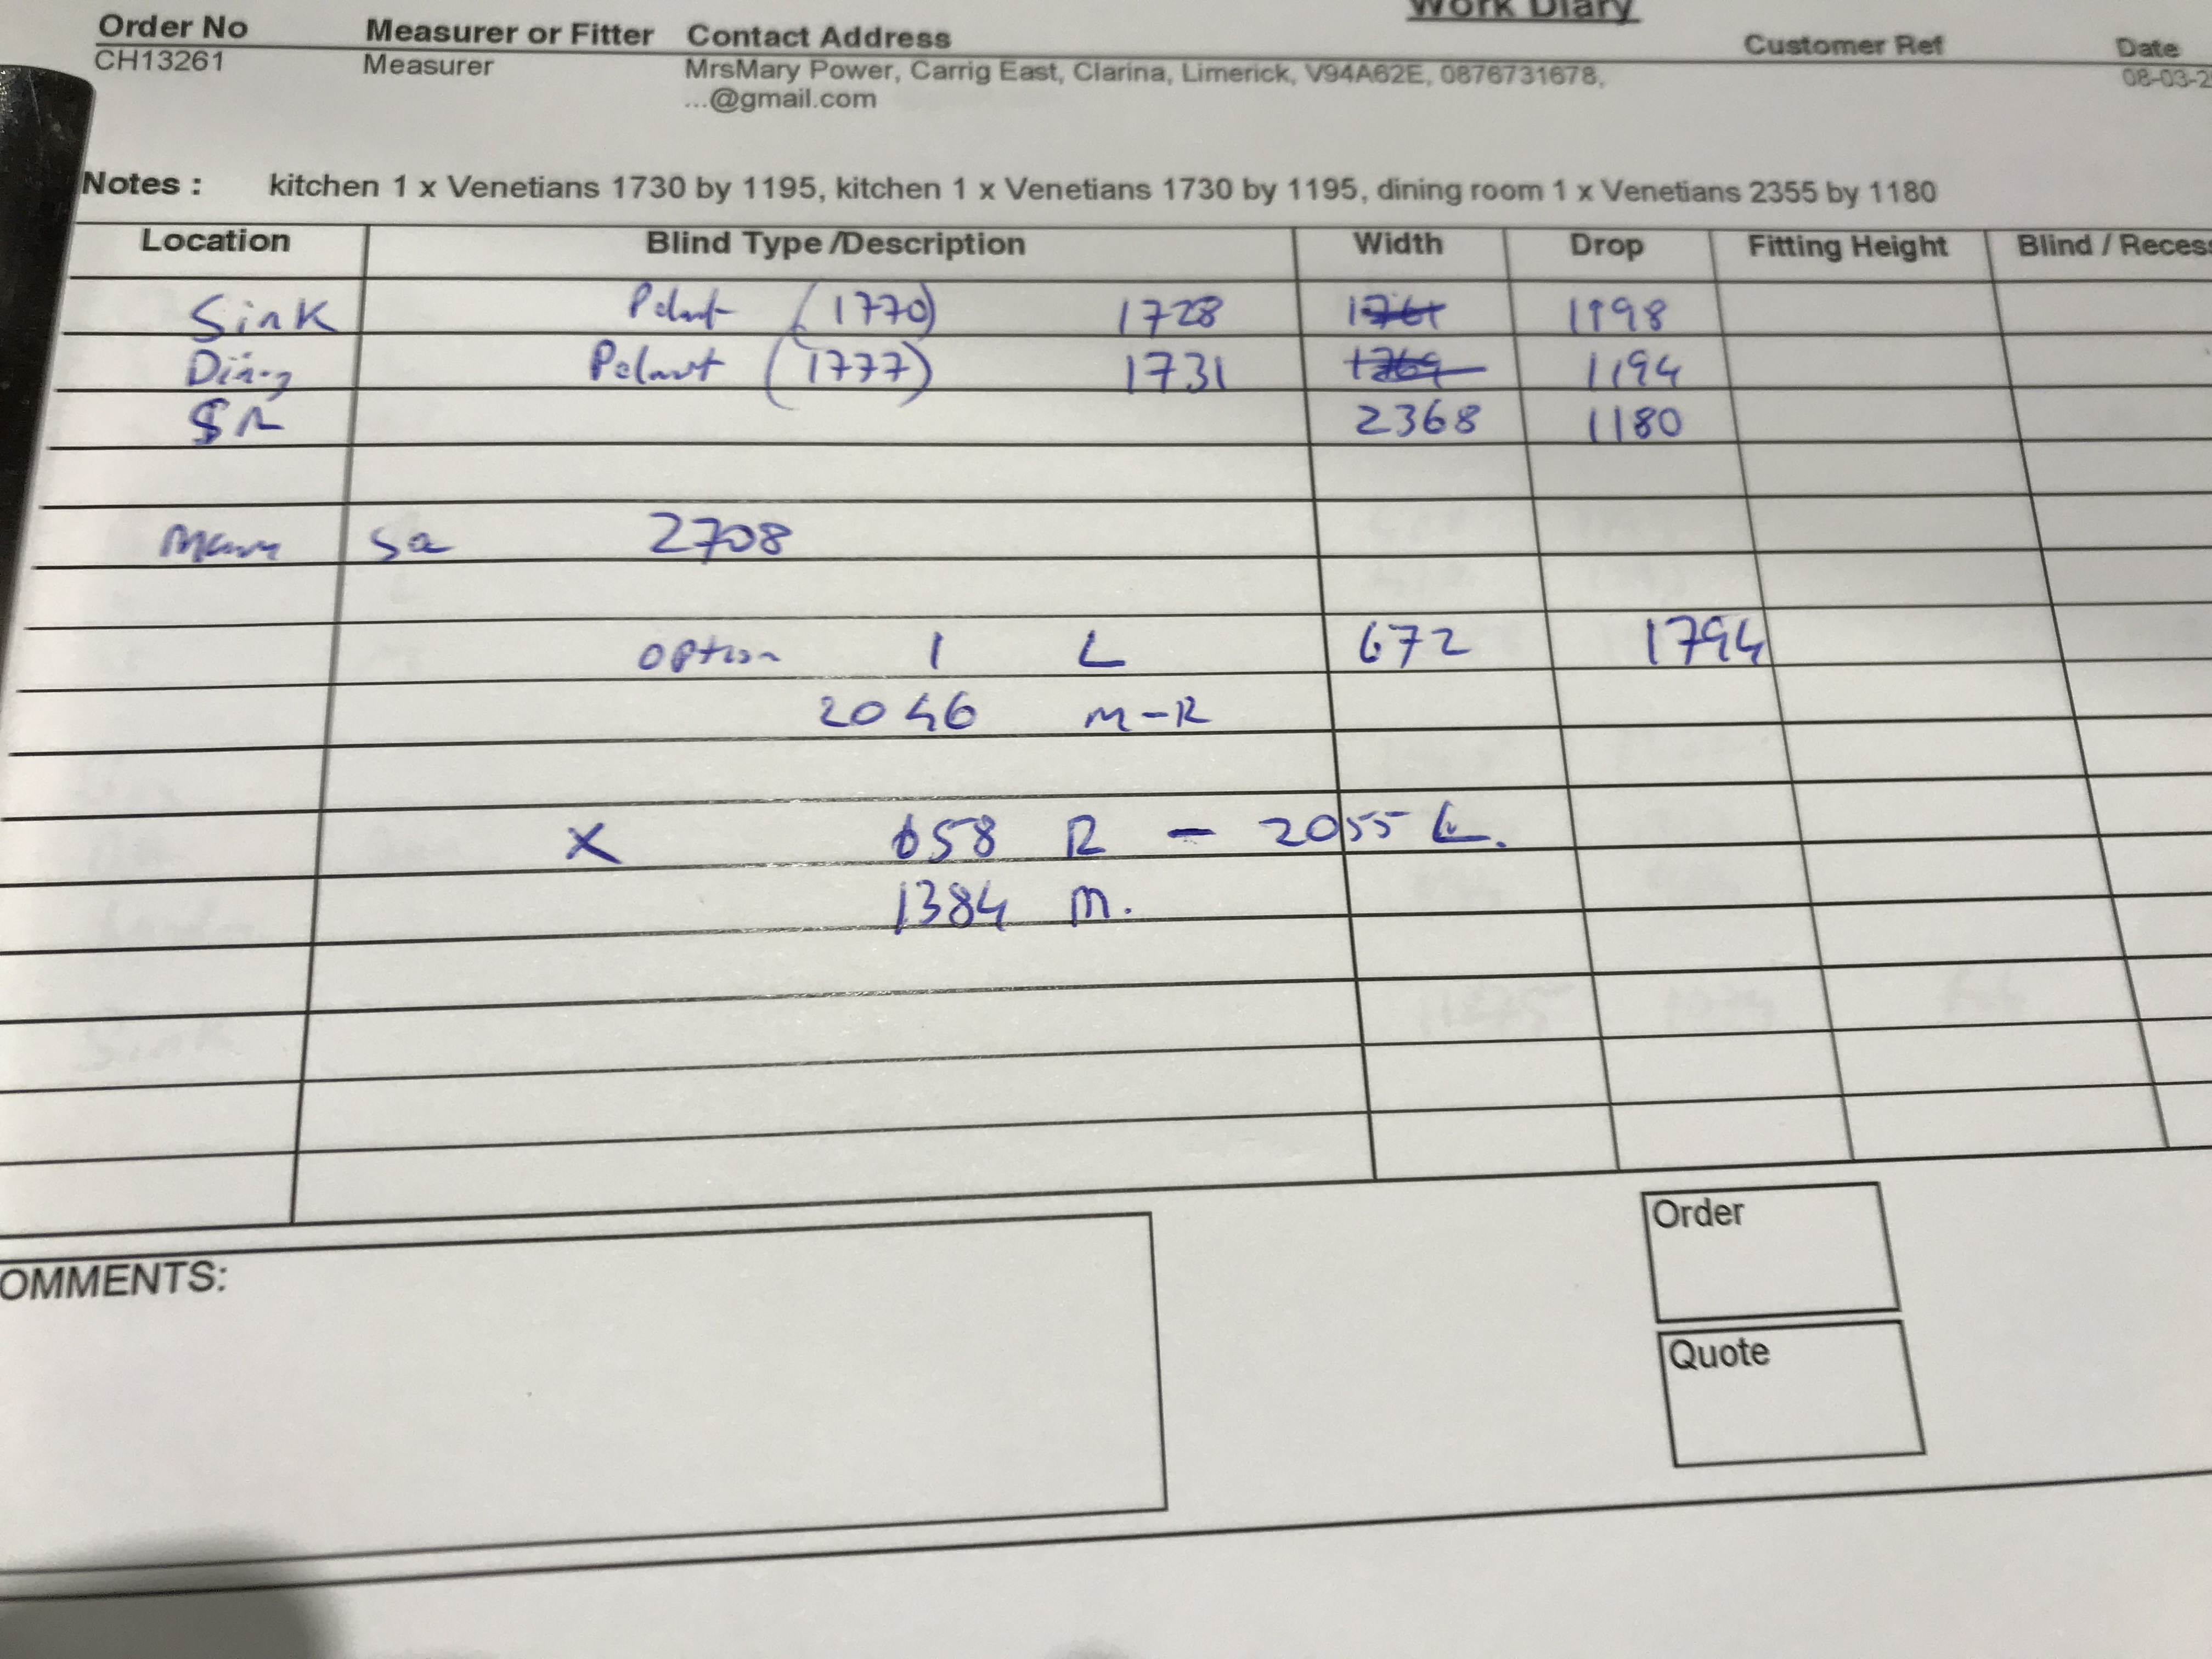 Work Diary
Order No Measurer or Fitter Contact Address Customer Ref Date
CH13261 Measurer MrsMary Power, Carrig East, Clarina, Limerick, V94A62E, 0876731678, 08-03-2
...@gmail.com
Notes : kitchen 1 x Venetians 1730 by 1195, kitchen 1 x Venetians 1730 by 1195, dining room 1 x Venetians 2355 by 1180
Location Blind Type /Description Width Drop Fitting Height Blind / Recess
Sink Pelmet (1770) 1728 1198
Dining Pelmet (1777) 1731 1194
SR 2368 1180
2708
option 1 L 672 1794
2046 M-R
X 658 R - 2055 L.
1384 M.
OMMENTS:
Order
Quote